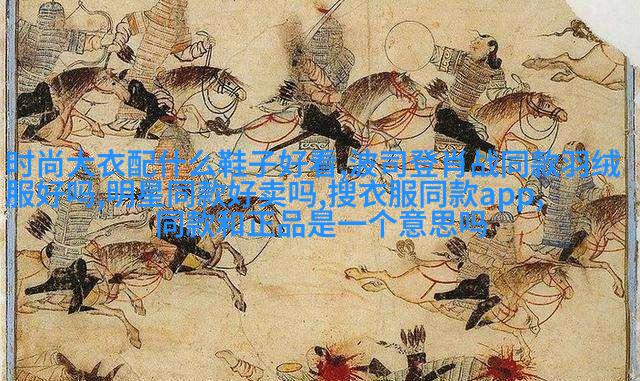 时尚大衣配什么鞋子好看,波司登肖战同款羽绒
服好吗,明星同款好卖吗,搜衣服同款app,
同款和正品是一个意思吗